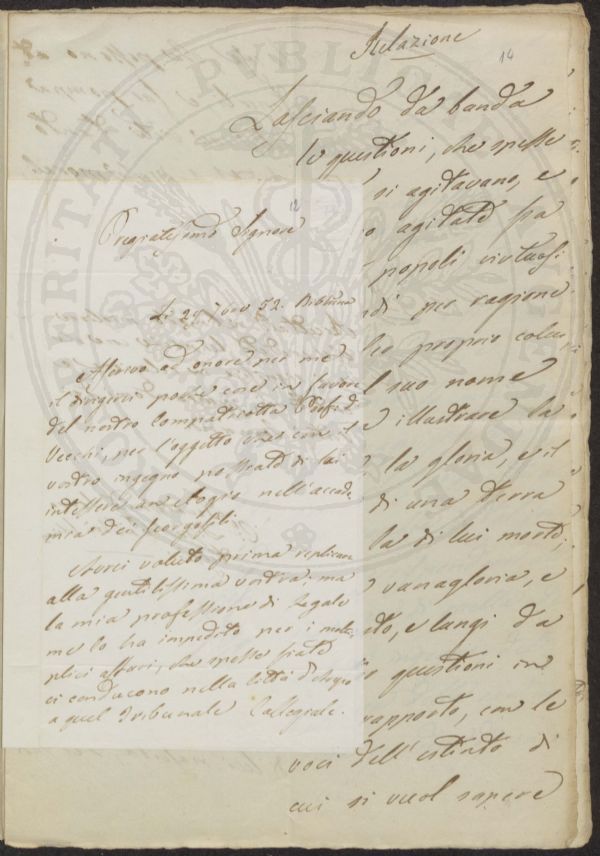 Relazione
14
Lasciando da banda
le questioni, che spesse
si agitavano, e
agitate fra
popoli virtuosi
per ragione
proprio
l suo nome
e illustrare la
la gloria, e il
di una terra
la di lui morte;
vanagloria, e
e lungi da
questioni in
rapporto, con le
voci dell'estinto di
cui si vuol sapere
12
Pregiatissimo Signore
Li 29 72. Bibbiena
ad onore per me
il dirigervi poche cose in favore
del nostro Compatriotta
Vecchi, per l'oggetto con il
vostro ingegno possiate di lui
intessere un elogio nell'accade
mia dei Georgofili.
Avrei voluto prima replicare
alla gentilissima vostra, ma
la mia professione di Legale
me lo ha impedito per i molte
plici affari, che spesse fiate
ci conducono nella città d'
a quel Tribunale Collegiale.
PUBLICAE